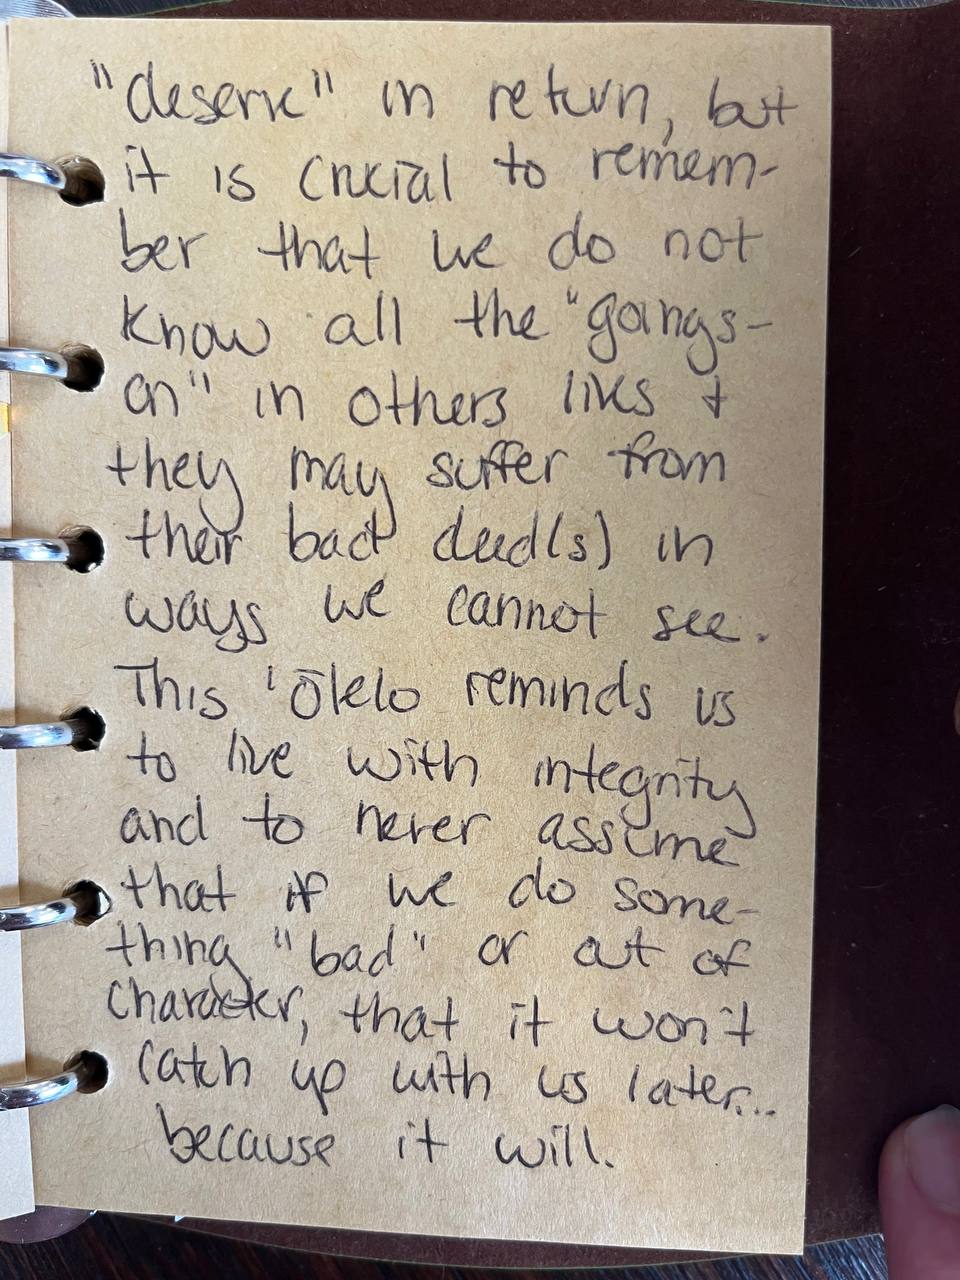 "deserve" in return, but
it is crucial to remem-
ber that we do not
know all the "goings-
on" in others lives +
they may suffer from
their bad deed(s) in
ways we cannot see.
This ʻŌlelo reminds us
to live with integrity
and to never assume
that if we do some-
thing "bad" or out of
character, that it won't
catch up with us later...
because it will.